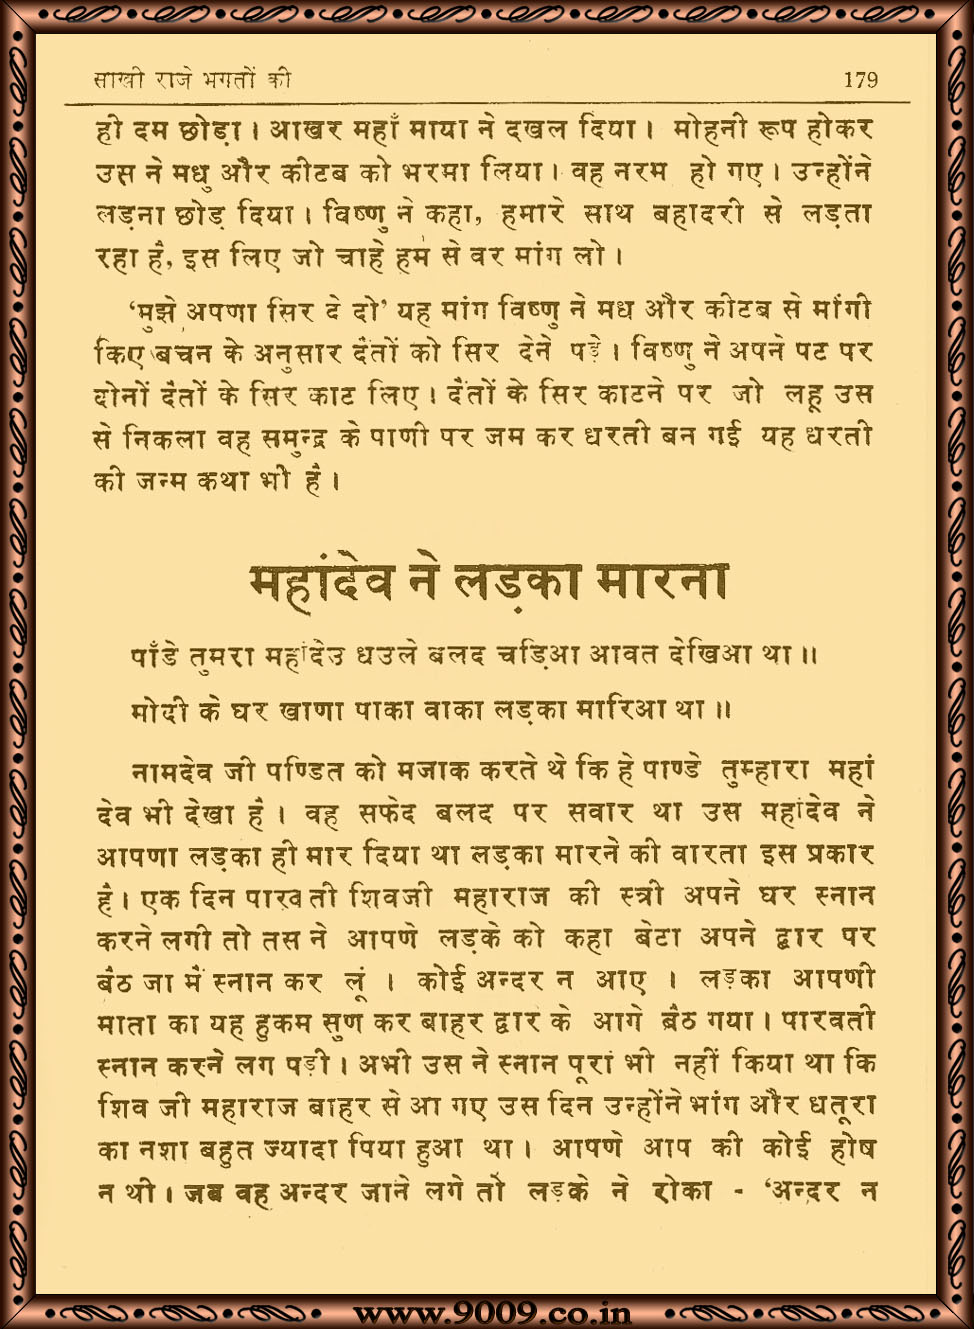 साखी राजे भगतों की 179
ही दम छोड़ा। आखर महाँ माया ने दखल दिया। मोहनी रूप होकर
उस ने मधु और कीटब को भरमा लिया। वह नरम हो गए। उन्होंने
लड़ना छोड़ दिया। विष्णु ने कहा, हमारे साथ बहादरी से लड़ता
रहा है, इस लिए जो चाहे हम से वर मांग लो।
‘मुझे अपणा सिर दे दो’ यह मांग विष्णु ने मध और कीटब से मांगी
किए बचन के अनुसार दैतों को सिर देने पड़े। विष्णु ने अपने पट पर
दोनों दैतों के सिर काट लिए। दैतों के सिर काटने पर जो लहू उस
से निकला वह समुन्द्र के पाणी पर जम कर धरती बन गई यह धरती
की जन्म कथा भी है।
महांदेव ने लड़का मारना
पाँडे तुमरा महांदेउ धउले बलद चड़िआ आवत देखिआ था॥
मोदी के घर खाणा पाका वाका लड़का मारिआ था॥
नामदेव जी पण्डित को मजाक करते थे कि हे पाण्डे तुम्हारा महां
देव भी देखा है। वह सफेद बलद पर सवार था उस महांदेव ने
आपणा लड़का ही मार दिया था लड़का मारने की वारता इस प्रकार
है। एक दिन पारवती शिवजी महाराज की स्त्री अपने घर स्नान
करने लगी तो तस ने आपणे लड़के को कहा बेटा अपने द्वार पर
बैठ जा मैं स्नान कर लूं । कोई अन्दर न आए । लड़का आपणी
माता का यह हुकम सुण कर बाहर द्वार के आगे बैठ गया। पारवती
स्नान करने लग पड़ी। अभी उस ने स्नान पूरा भी नहीं किया था कि
शिव जी महाराज बाहर से आ गए उस दिन उन्होंने भांग और धतूरा
का नशा बहुत ज्यादा पिया हुआ था। आपणे आप की कोई होष
न थी। जब वह अन्दर जाने लगे तो लड़के ने रोका - ‘अन्दर न
www.9009.co.in